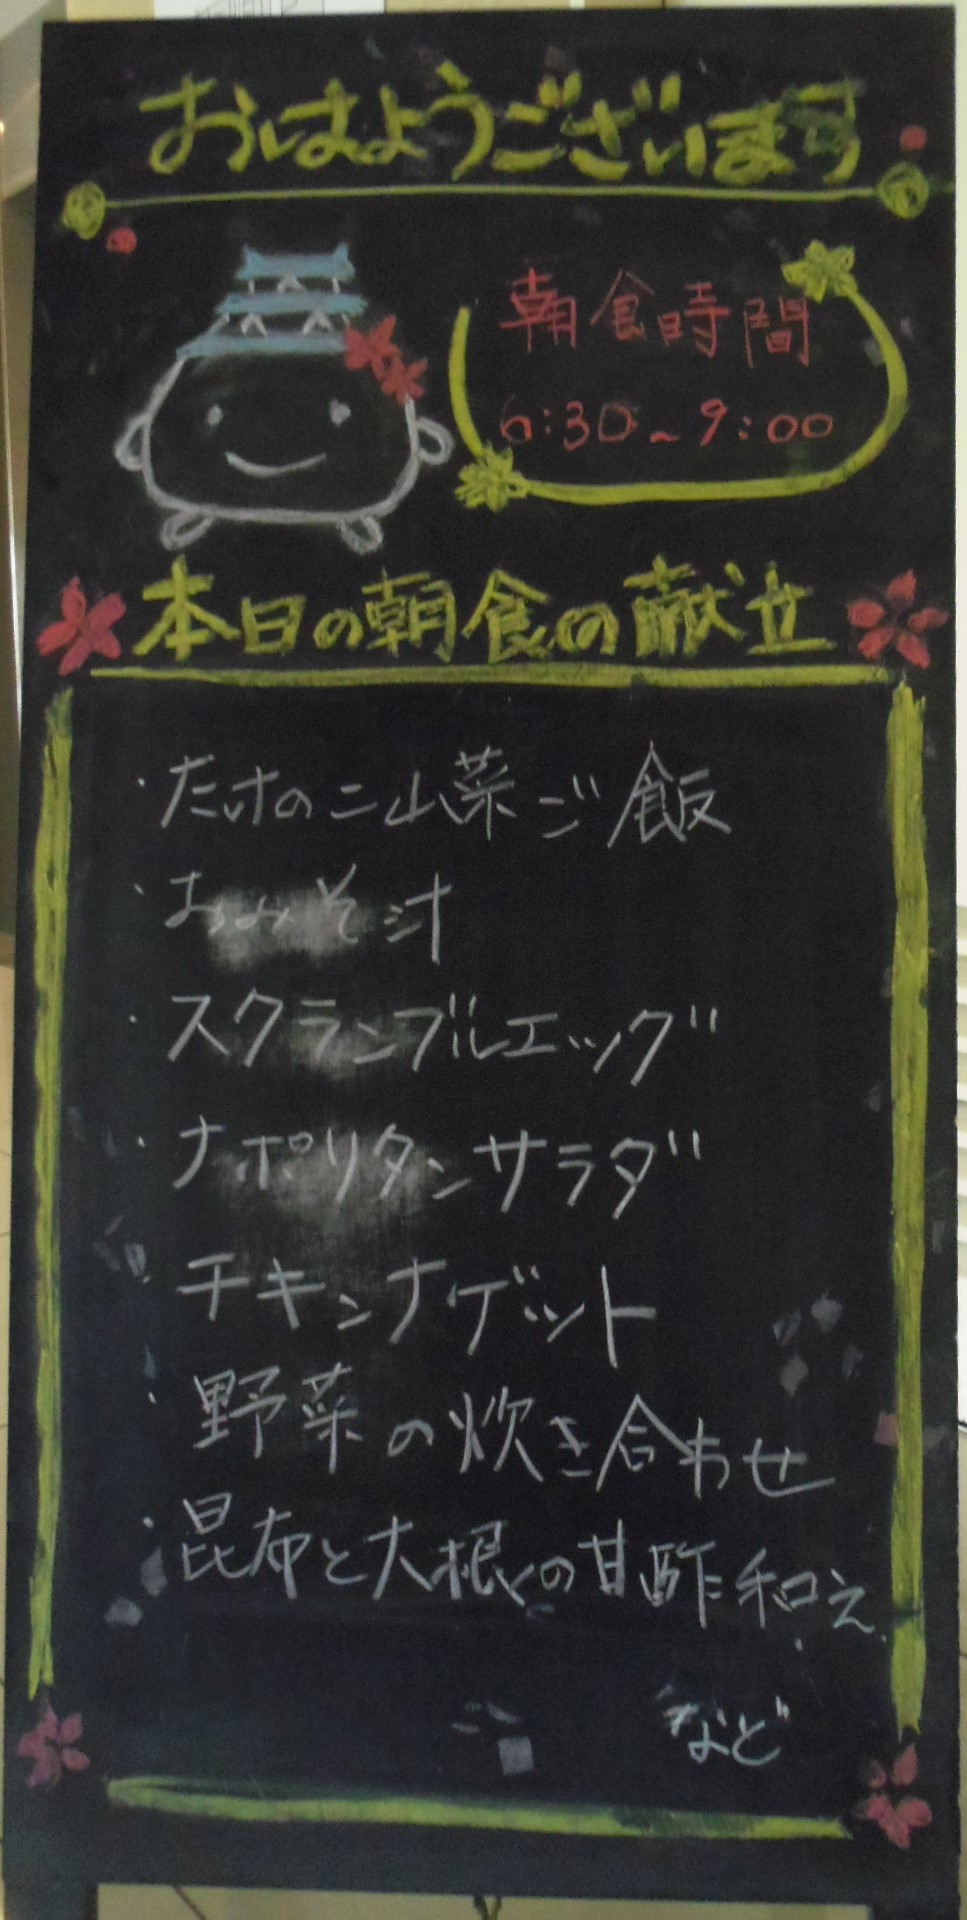 おはようございます
朝食時間
6:30~9:00
本日の朝食の献立
・たけのこ山菜ご飯
・おみそ汁
・スクランブルエッグ
・ナポリタンサラダ
・チキンナゲット
・野菜の炊き合わせ
・昆布と大根の甘酢和え
など